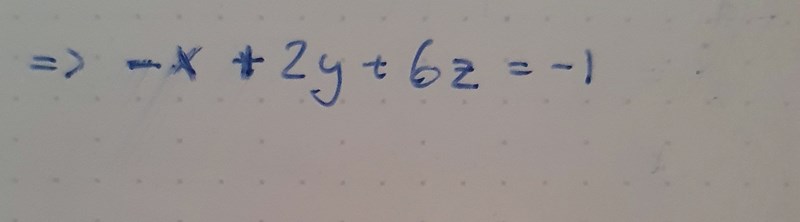 => -x + 2y + 6z = -1